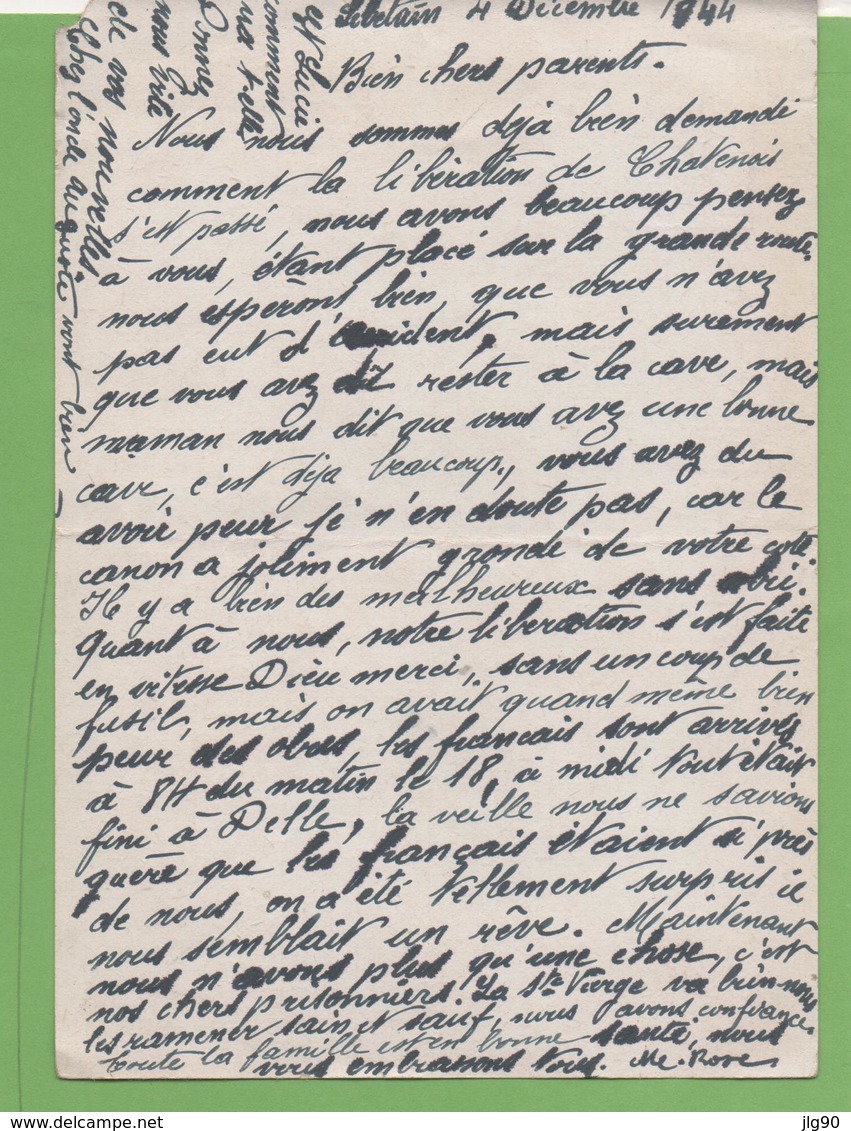 Lebetain 4 Décembre 1944
Bien chers parents.
Nous nous sommes déjà bien demandé
comment la libération de Chatenois
s'est passé, nous avons beaucoup pensez
à vous, étant placé sur la grande route.
nous espèront bien, que vous n'avez
pas eut d'accident, mais surement
que vous avez dû rester à la cave, mais
maman nous dit que vous avez une bonne
cave, c'est déja beaucoup, vous avez du
avoir peur je n'en doute pas, car le
canon a joliment grondé de votre coté
Il y a bien des malheureux sans abri.
quant à nous, notre liberation s'est faite
en vitesse Dieu merci, sans un coup de
fusil, mais on avait quand même bien
peur des obus, les français sont arrivés
à 8H du matin le 18, à midi tout était
fini à Delle, la veille nous ne savions
guère que les français étaient si près
de nous, on a été tellement surpris il
nous semblait un rêve. Maintenant
nous n'avons plus qu'une chose, c'est
nos chers prisonniers. La Ste Vierge va bien nous
les ramener sain et sauf, nous avons confiance.
Toute la famille est en bonne santé, nous
vous embrassons tous. Me. Rose
Chez l'oncle auguste vont bien
de vos nouvelles
nous vite
Donnez
va t-elle
comment
et Lucie
jlg90